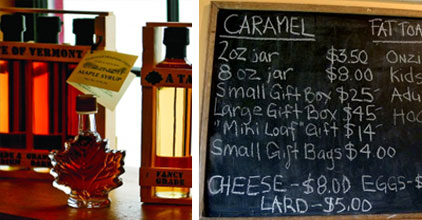 E OF VERMONT
MAPLE SYRUP
A TA
FANCY
GRADE
CARAMEL
2oz jar $3.50
8 oz jar $8.00
Small Gift Box $25
Large Gift Box $45
"Mini Loaf" Gift $14
Small Gift Bags $4.00
CHEESE - $8.00 EGGS-$
LARD - $5.00
FAT TOA
ONZI
Kids
Adu
Hoo